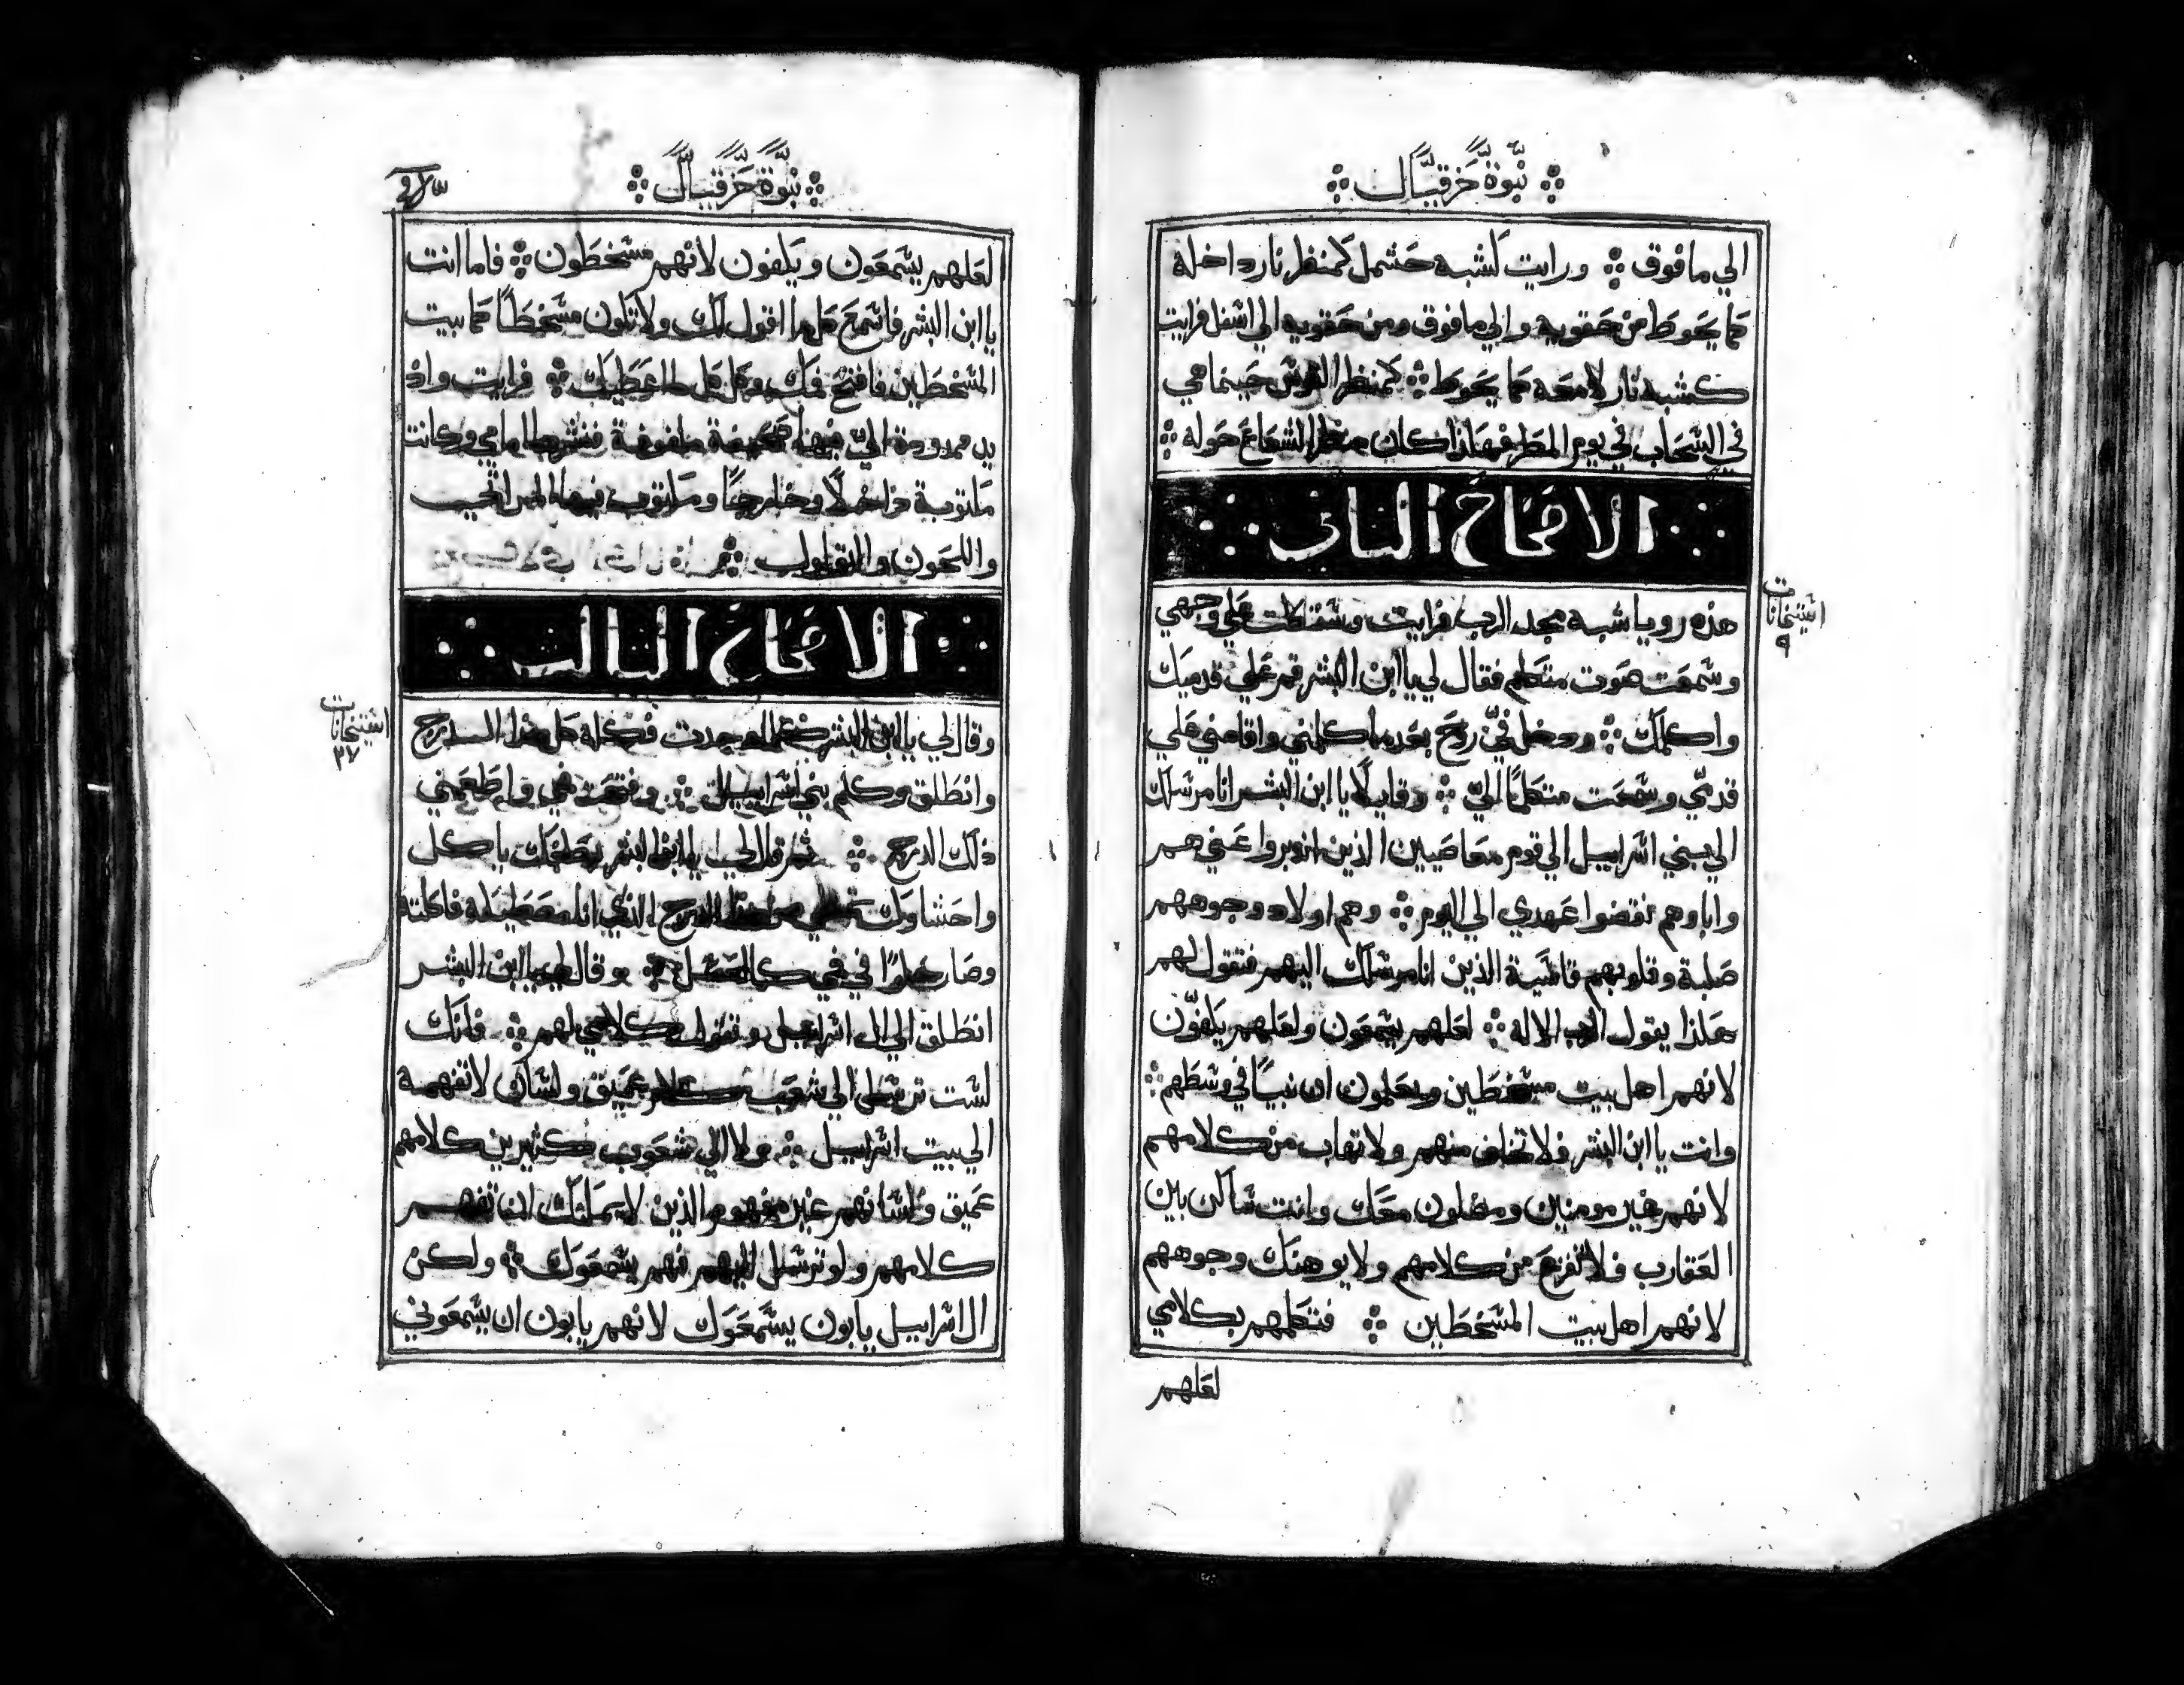 نبوة حزقيال
الي ما فوق ورايت كشبه حشمل كمنظر نار داخله
كما يحوط من حقويه والي ما فوق ومن حقويه الي اسفل فرايت
كشبه نار لامعه كما يحوط كمنظر القوس حينما هي
في السحاب في يوم المطر فهكذا كان منظر الشعاع حوله
الاصحاح الثاني
استيخانات
٩
هذه رويا شبه مجد الرب فرايت وسقطت علي وجهي
وسمعت صوت متكلم فقال لي يا ابن البشر قم علي قدميك
واكلمك ودخل فيّ روح بعد ما كلمني واقامني علي
قدمي وسمعت متكلمًا اليّ وقايلًا يا ابن البشر انا مرسلك
الي بني اسراييل الي قوم معاصيين الذين ادبروا عني هم
واباوهم نقضوا عهدي الي اليوم وهم اولاد وجوههم
صلبة وقلوبهم قاسية الذين انا مرسلك اليهم فتقول لهم
هكذا يقول الرب الاله لعلهم يسمعون ولعلهم يكفّون
لانهم اهل بيت مسخطين ويعلمون ان نبيًا في وسطهم
وانت يا ابن البشر فلا تخاف منهم ولا تهاب من كلامهم
لانهم غير مومنين ومضلون معك وانت ساكن بين
العقارب فلا تفزع من كلامهم ولا يوهنك وجوههم
لانهم اهل بيت المسخطين فتكلمهم بكلامي
لعلهم
نبوة حزقيال
لعلهم يسمعون ويكفون لانهم مسخطون فاما انت
يا ابن البشر فاسمع كل ما اقول لك ولا تكون مسخطًا كما بيت
المسخطين فافتح فمك وكل كل ما اعطيك فرايت واذ
يد ممدودة اليّ فيها صحيفة ملفوفة فنشرها امامي وكانت
مكتوبة داخلًا وخارجًا ومكتوب فيها المراثي
واللحون والتقاويل
الاصحاح الثالث
استيخانات
٣٧
وقال لي يا ابن البشر كلما وجدت فكله كل هذا الدرج
وانطلق وكلم بني اسراييل وفتحت فمي واطعمني
ذلك الدرج ثم قال لي يا ابن البشر بطنك ياكل
واحشاوك تمتلي من هذا الدرج الذي انا معطيكه فاكلته
وصار حلوًا في فمي كالعسل وقال لي يا ابن البشر
انطلق الي ال اسراييل وتقول كلامي لهم فانك
لست ترسل الي شعب كلام عميق ولسان لا تفهمه
الي بيت اسراييل ولا الي شعوب كثيرين كلامهم
عميق ولسانهم غير مفهوم الذين لا يمكنك ان تفهم
كلامهم ولو ترسل اليهم فهم يسمعوك ولكن
ال اسراييل يابون يسمعوك لانهم يابون ان يسمعوني